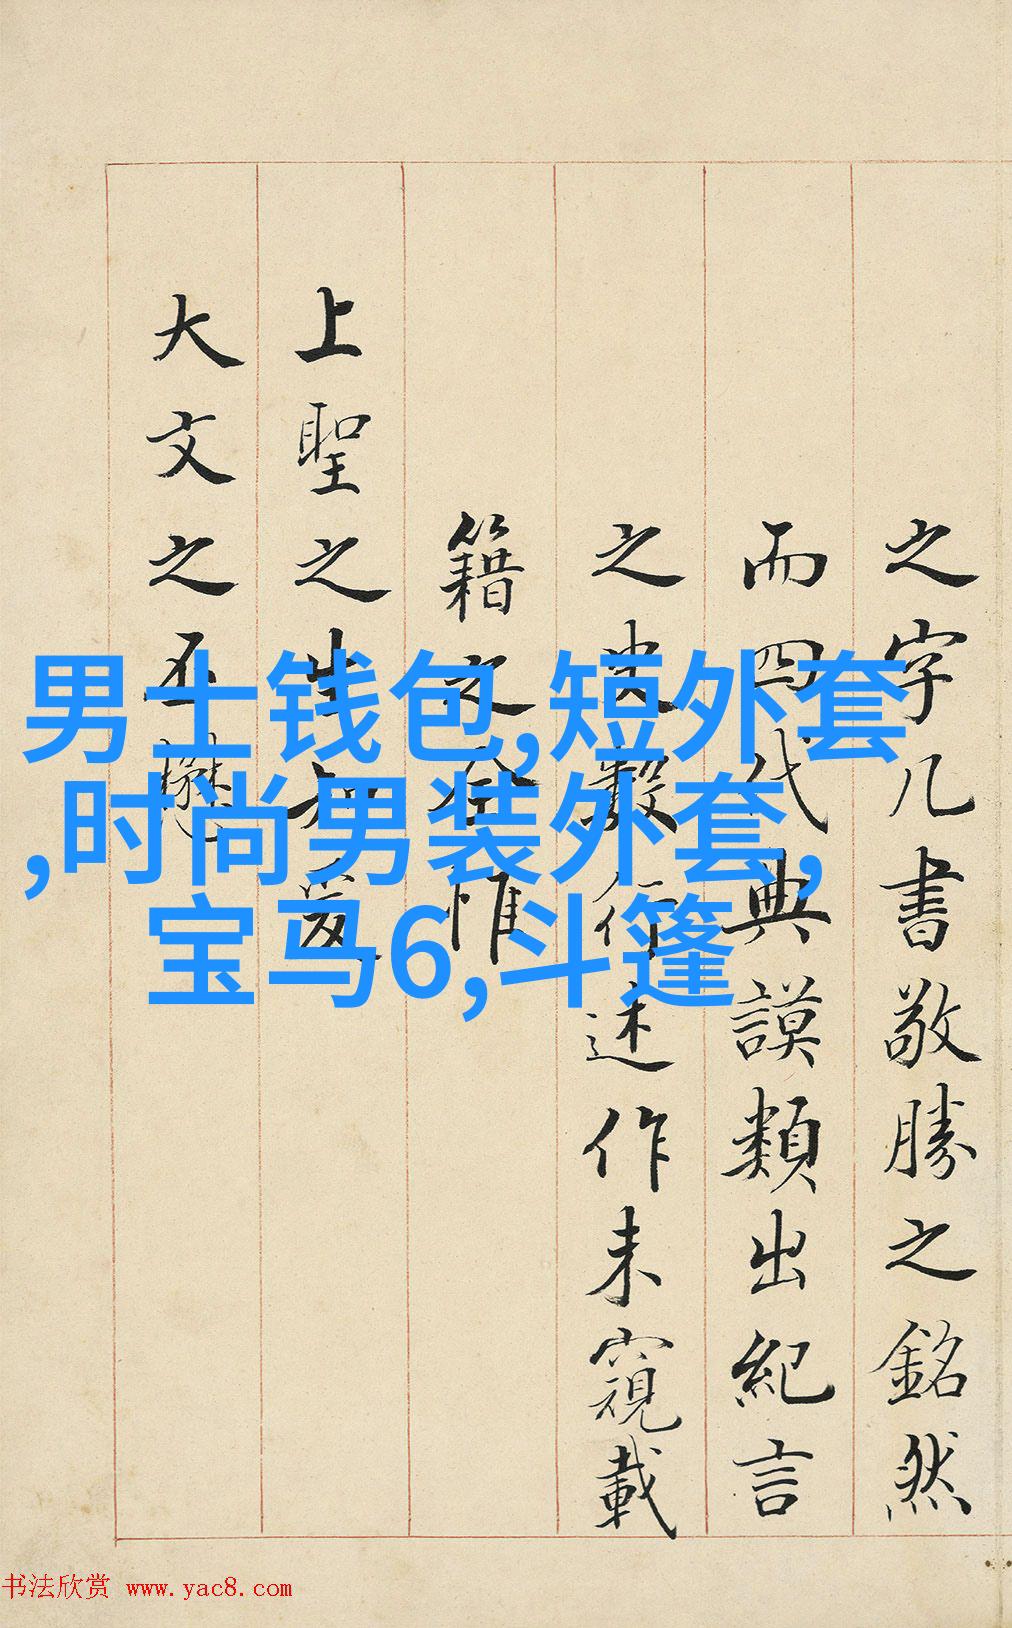 之字几書敬勝之銘然
而四代典謨類出紀言
之史數行述作未窺載
籍之
惟
上聖之生
爰
大文之丕懋
男士钱包,短外套
,时尚男装外套,
宝马6,斗篷
书法欣赏 www.yac8.com